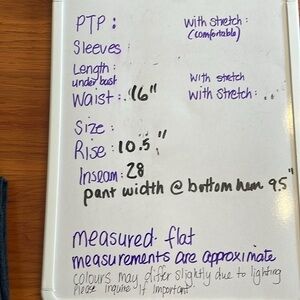 PTP : With stretch :
(comfortable)
Sleeves
Length :
under bust With stretch
Waist : 16" With stretch :
Size :
Rise : 10.5"
Inseam : 28"
pant width @ bottom hem 9.5"
measured flat
measurements are approximate
colours may differ slightly due to lighting
Please inquire if important